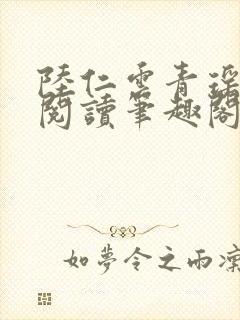 陸仁雲青瑶
閱讀筆趣閣
如夢令之雨凜